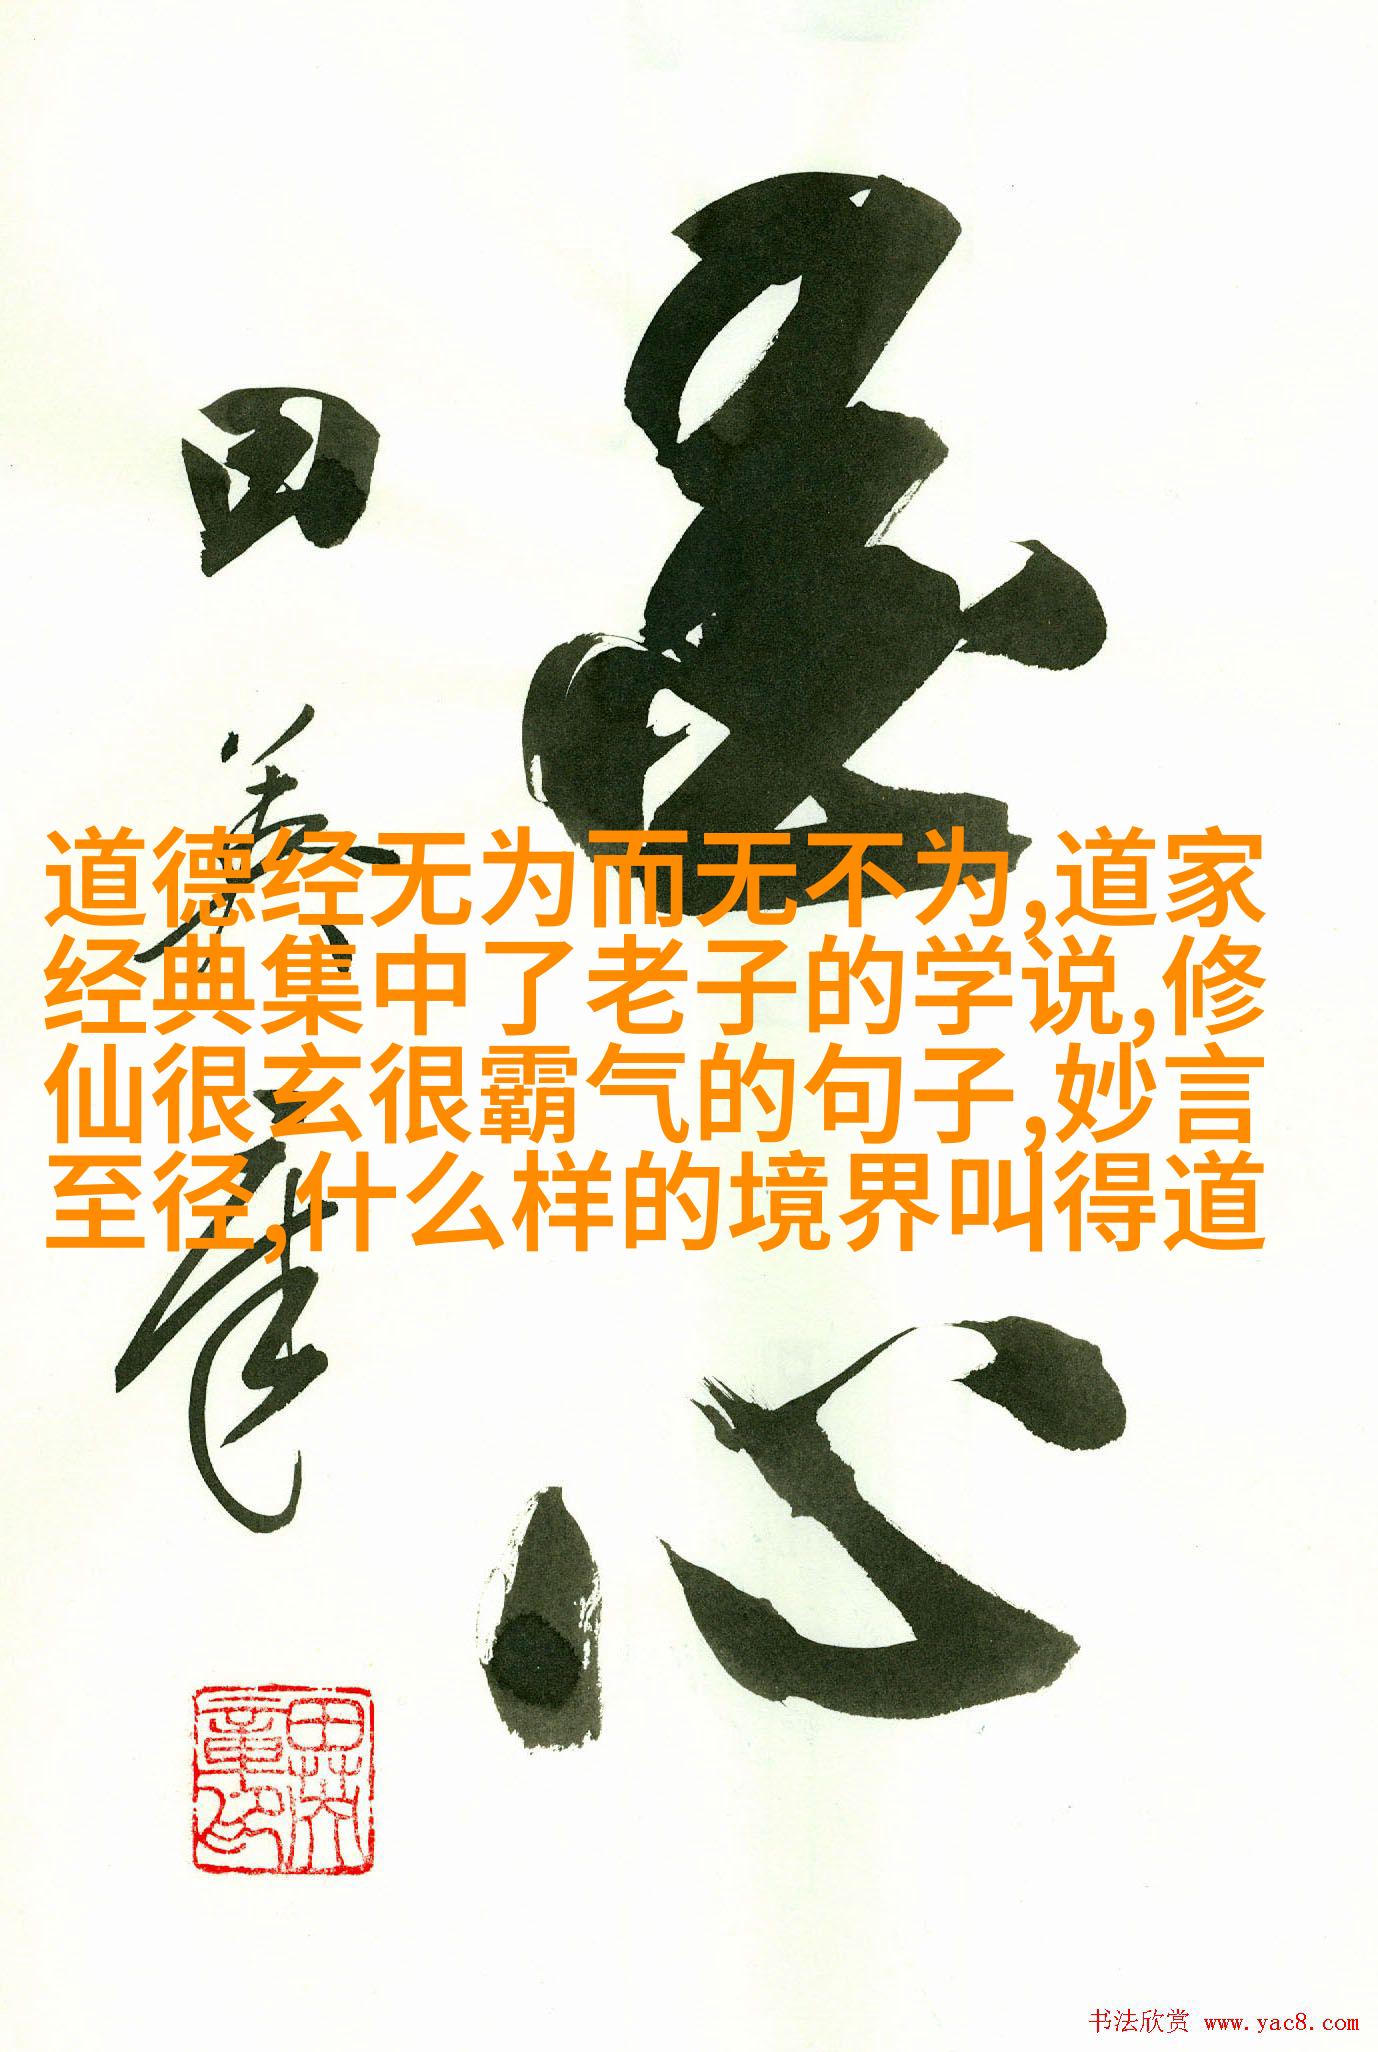 道德经无为而无不为,道家
经典集中了老子的学说,修
仙很玄很霸气的句子,妙言
至径,什么样的境界叫得道
心
田
书法欣赏 www.yac8.com